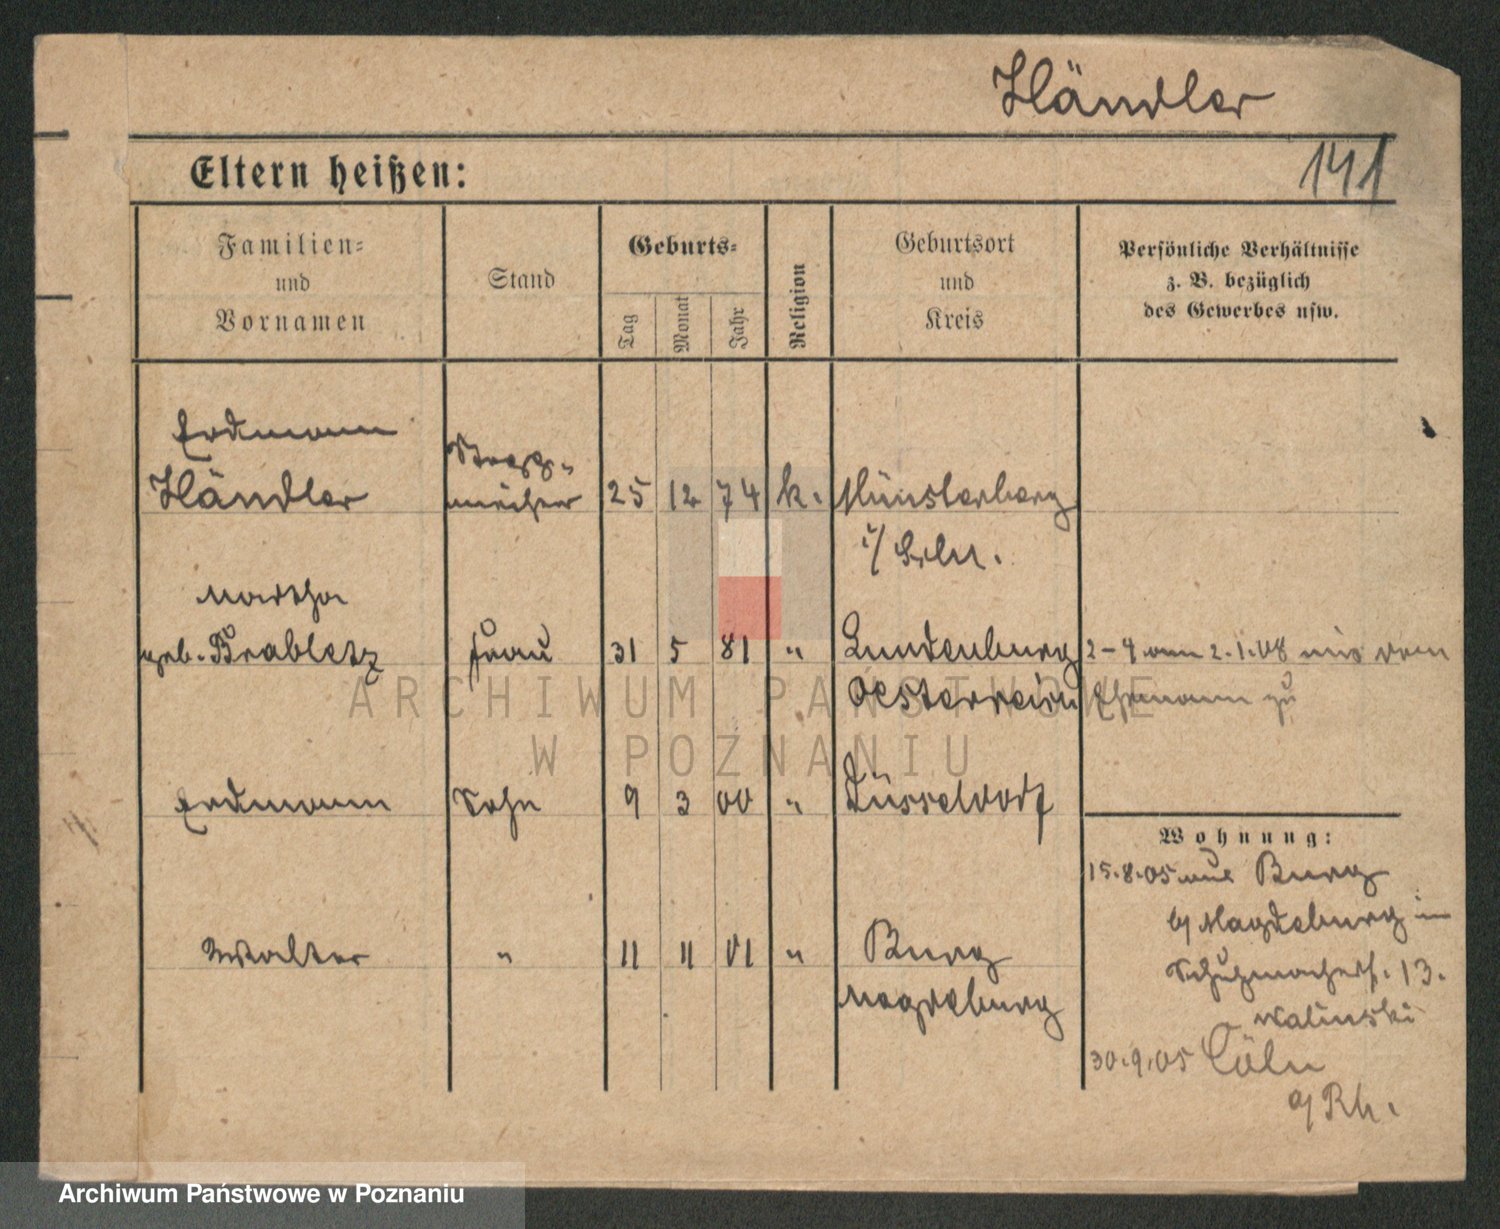 Händler
141
Eltern heißen:
Familien=
und
Vornamen
Stand
Geburts=
Tag
Monat
Jahr
Religion
Geburtsort
und
Kreis
Persönliche Verhältnisse
z. B. bezüglich
des Gewerbes usw.
Erdmann
Händler
macher
25 12 74 k. Münsterberg
i/ Schl.
Martha
geb. Brabletz Frau 31 5 81 " Lundenburg
Oesterreich
2-4 am 2.1.08 mit dem
Ehemann zu
Erdmann Sohn 9 3 00 " Düsseldorf
Wohnung:
15.8.05 aus Burg
b/ Magdeburg in
Schuhmacherst. 13.
Walinski
30.9.05 Cöln
a/Rh.
Walter " 11 11 01 " Burg
Magdeburg
ARCHIWUM PAŃSTWOWE
W POZNANIU
Archiwum Państwowe w Poznaniu